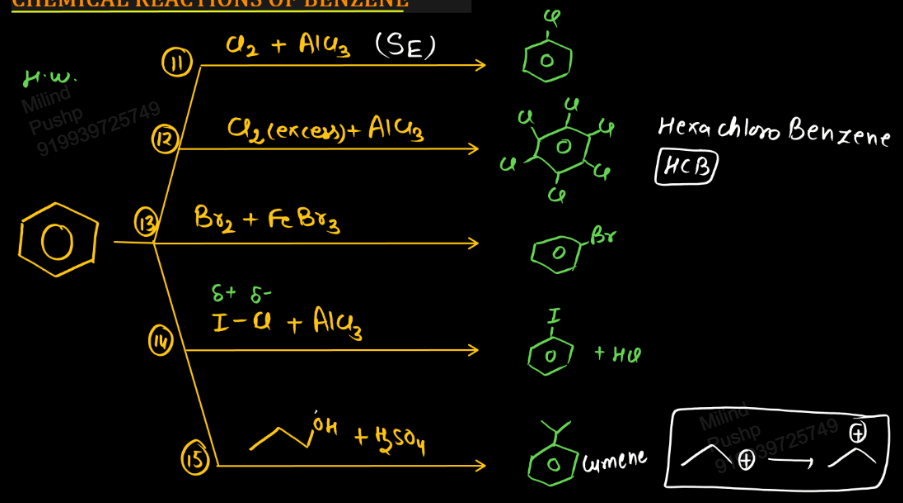 CHEMICAL REACTIONS OF BENZENE
H.W.
Milind
Pushp
919939725749
11 Cl2 + AlCl3 (SE)
Cl
12 Cl2 (excess) + AlCl3
Cl Cl Cl Cl Cl Cl
Hexachloro Benzene
HCB
13 Br2 + FeBr3
Br
δ+ δ-
14 I-Cl + AlCl3
I
+ HCl
15 OH + H2SO4
Cumene
Milind
Pushp
919939725749
⊕ → ⊕